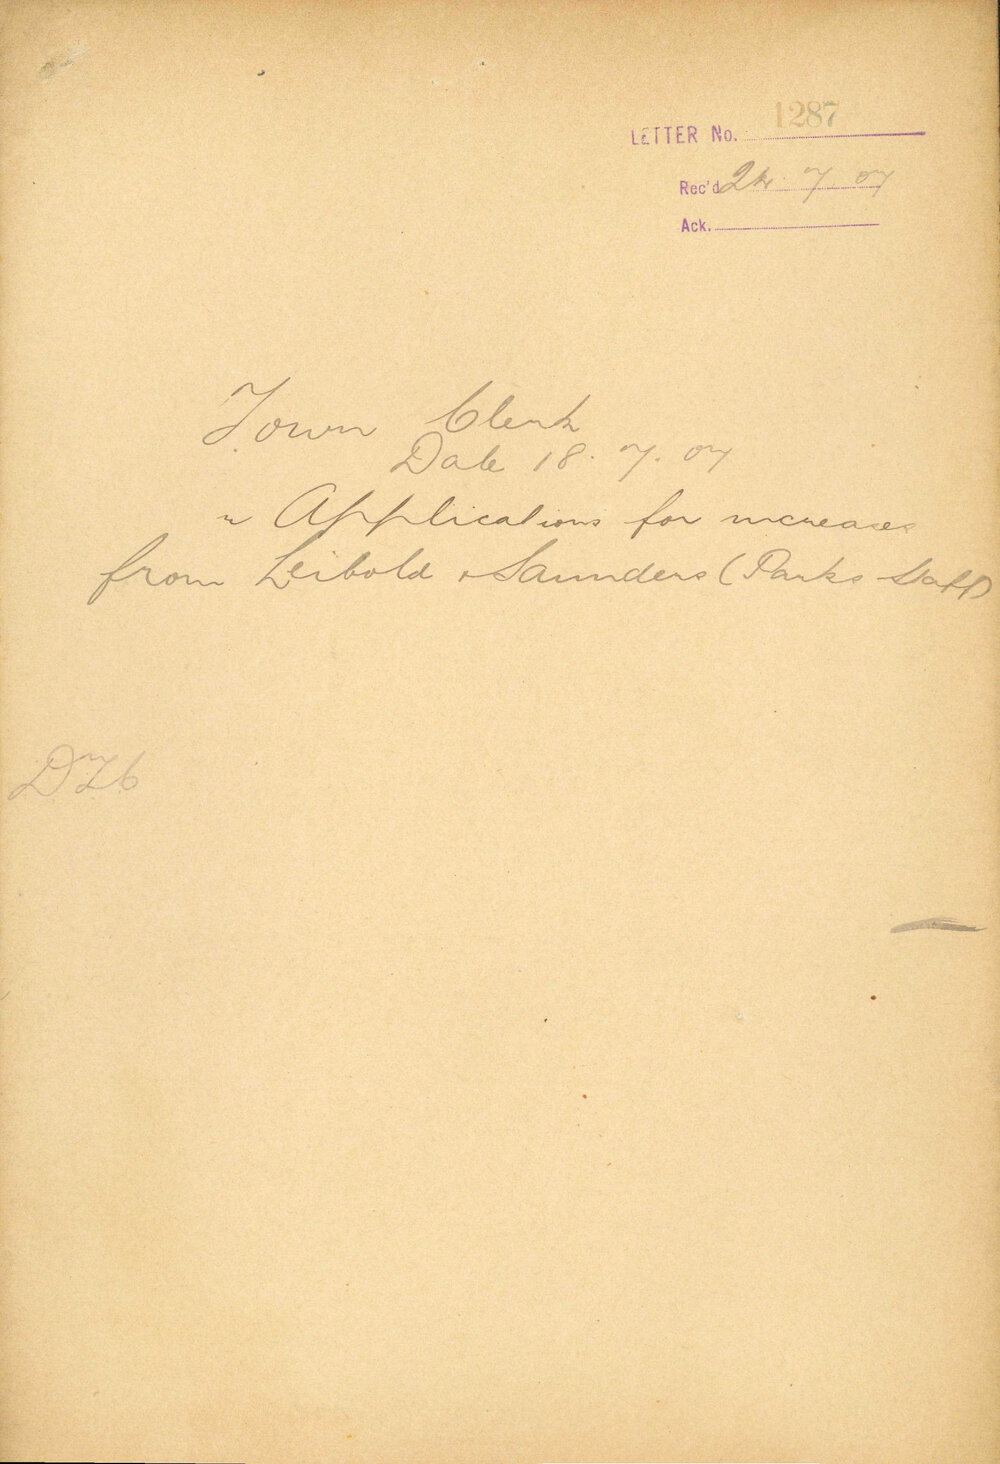 LETTER No. 1287
Rec'd 24. 7. 07
Ack.
Town Clerk
Date 18. 7. 07
Applications for increases
from Leibold & Saunders (Parks Staff)